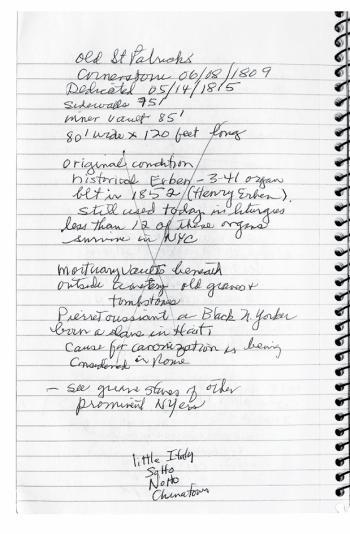 Old St Patricks
Cornerstone 06/08/1809
Dedicated 05/14/1815
sidewalls 75'
inner vault 85'
80' wide x 120 feet long
original condition
historical Erben - 3-41 organ
blt in 1852 (Henry Erben).
still used today in liturgies
less than 12 of these organs
survive in NYC
mortuary vaults beneath
outside cemetery old graves +
tombstones
Pierre Toussiant a Black N. Yorker
born a slave in Haiti
Cause for canonization is being
Considered in Rome
- see grave stones of other
prominent NYers
little Italy
SoHo
NoHo
Chinatown